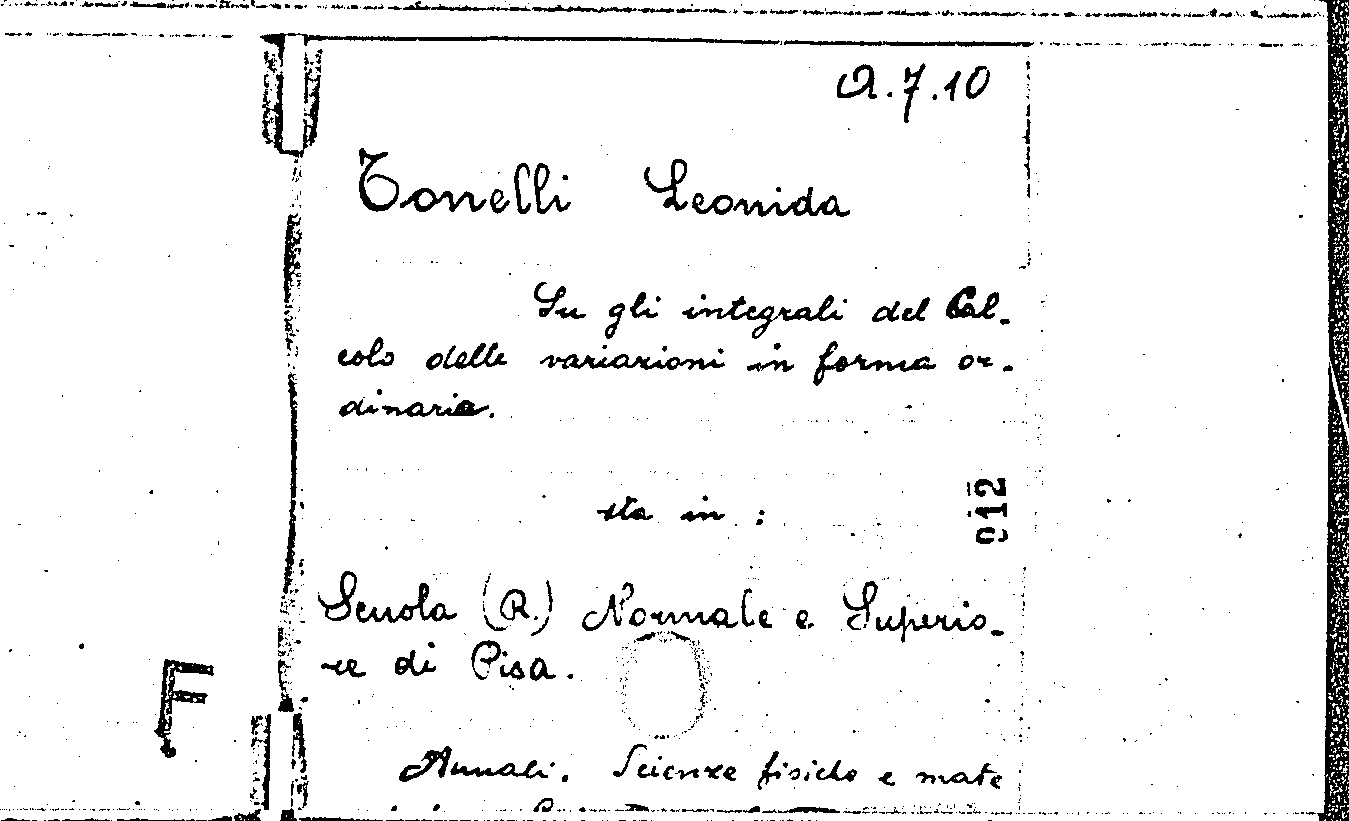 A.7.10
Tonelli Leonida
Su gli integrali del Cal-
colo delle variazioni in forma or-
dinaria.
912
sta in :
Scuola (R.) Normale e Superio-
re di Pisa.
F
Annali. Scienze fisiche e mate